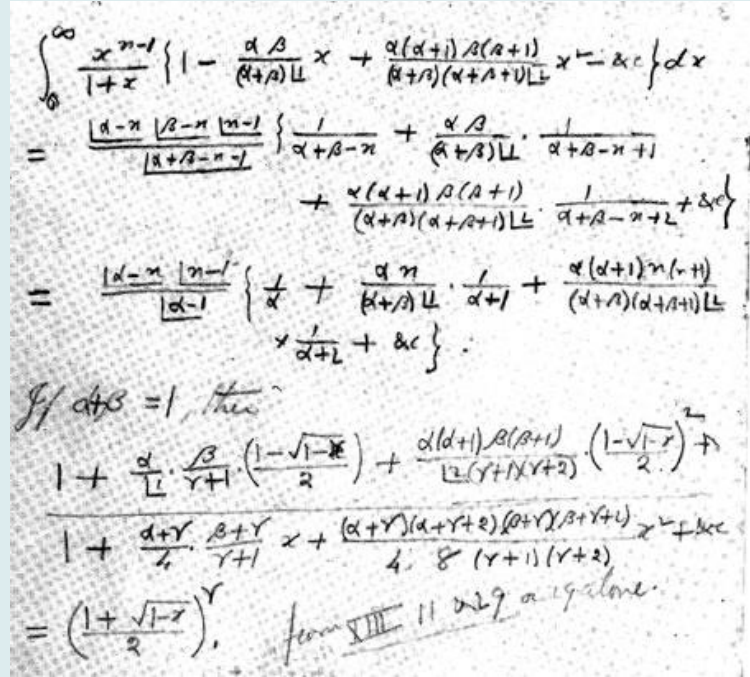 ∫₀^∞ x^{n-1}/(1+x) {1 - αβ/((α+β)|1) x + α(α+1)β(β+1)/((α+β)(α+β+1)|2) x² - &c} dx
= |α-n |β-n |n-1 / |α+β-n-1 {1/(α+β-n) + αβ/((α+β)|1) · 1/(α+β-n+1)
+ α(α+1)β(β+1)/((α+β)(α+β+1)|2) · 1/(α+β-n+2) + &c}
= |α-n |n-1 / |α-1 {1/α + αn/((α+β)|1) · 1/(α+1) + α(α+1)n(n+1)/((α+β)(α+β+1)|2)
× 1/(α+2) + &c}.
If α+β = 1, then
1 + α/|1 · β/(γ+1) · ((1-√(1-x))/2) + α(α+1)β(β+1)/(|2(γ+1)(γ+2)) · ((1-√(1-x))/2)² +
1 + (α+γ)/4 · (β+γ)/(γ+1) x + (α+γ)(α+γ+2)(β+γ)(β+γ+2)/(4·8(γ+1)(γ+2)) x² + &c
= ((1+√(1-x))/2)^γ. from XIII 11